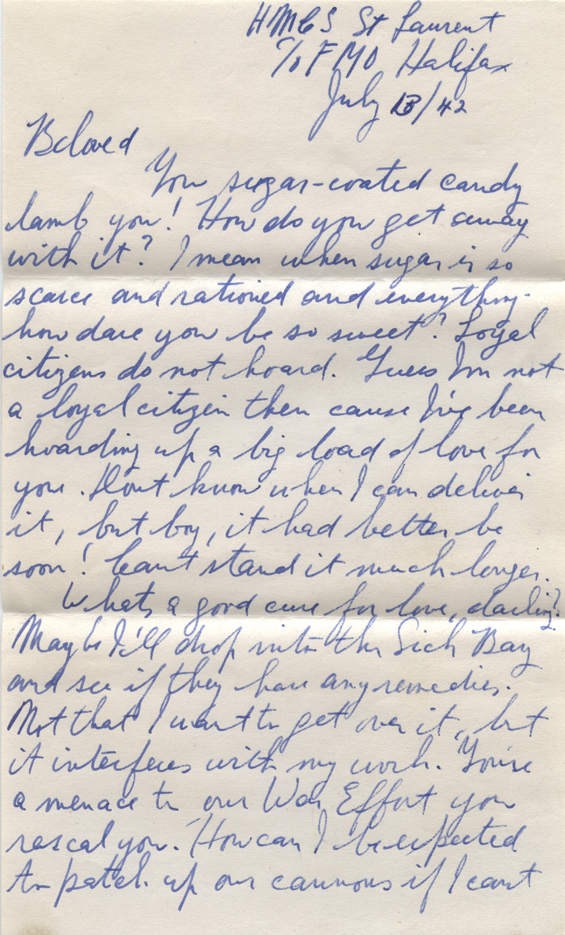 HMCS St Laurent
c/o FMO Halifax
July 13/42
Beloved
You sugar-coated candy
lamb you! How do you get away
with it? I mean when sugar is so
scarce and rationed and everything.
how dare you be so sweet? Loyal
citizens do not hoard. Guess Im not
a loyal citizen then cause I've been
hoarding up a big load of love for
you. Dont know when I can deliver
it, but boy, it had better be
soon! Cant stand it much longer.
Whats a good cure for love, darling?
Maybe I'll drop into the Sick Bay
and see if they have any remedies.
Not that I want to get over it, but
it interferes with my work. You're
a menace to our War Effort you
rascal you. How can I be expected
to patch up our cannons if I cant